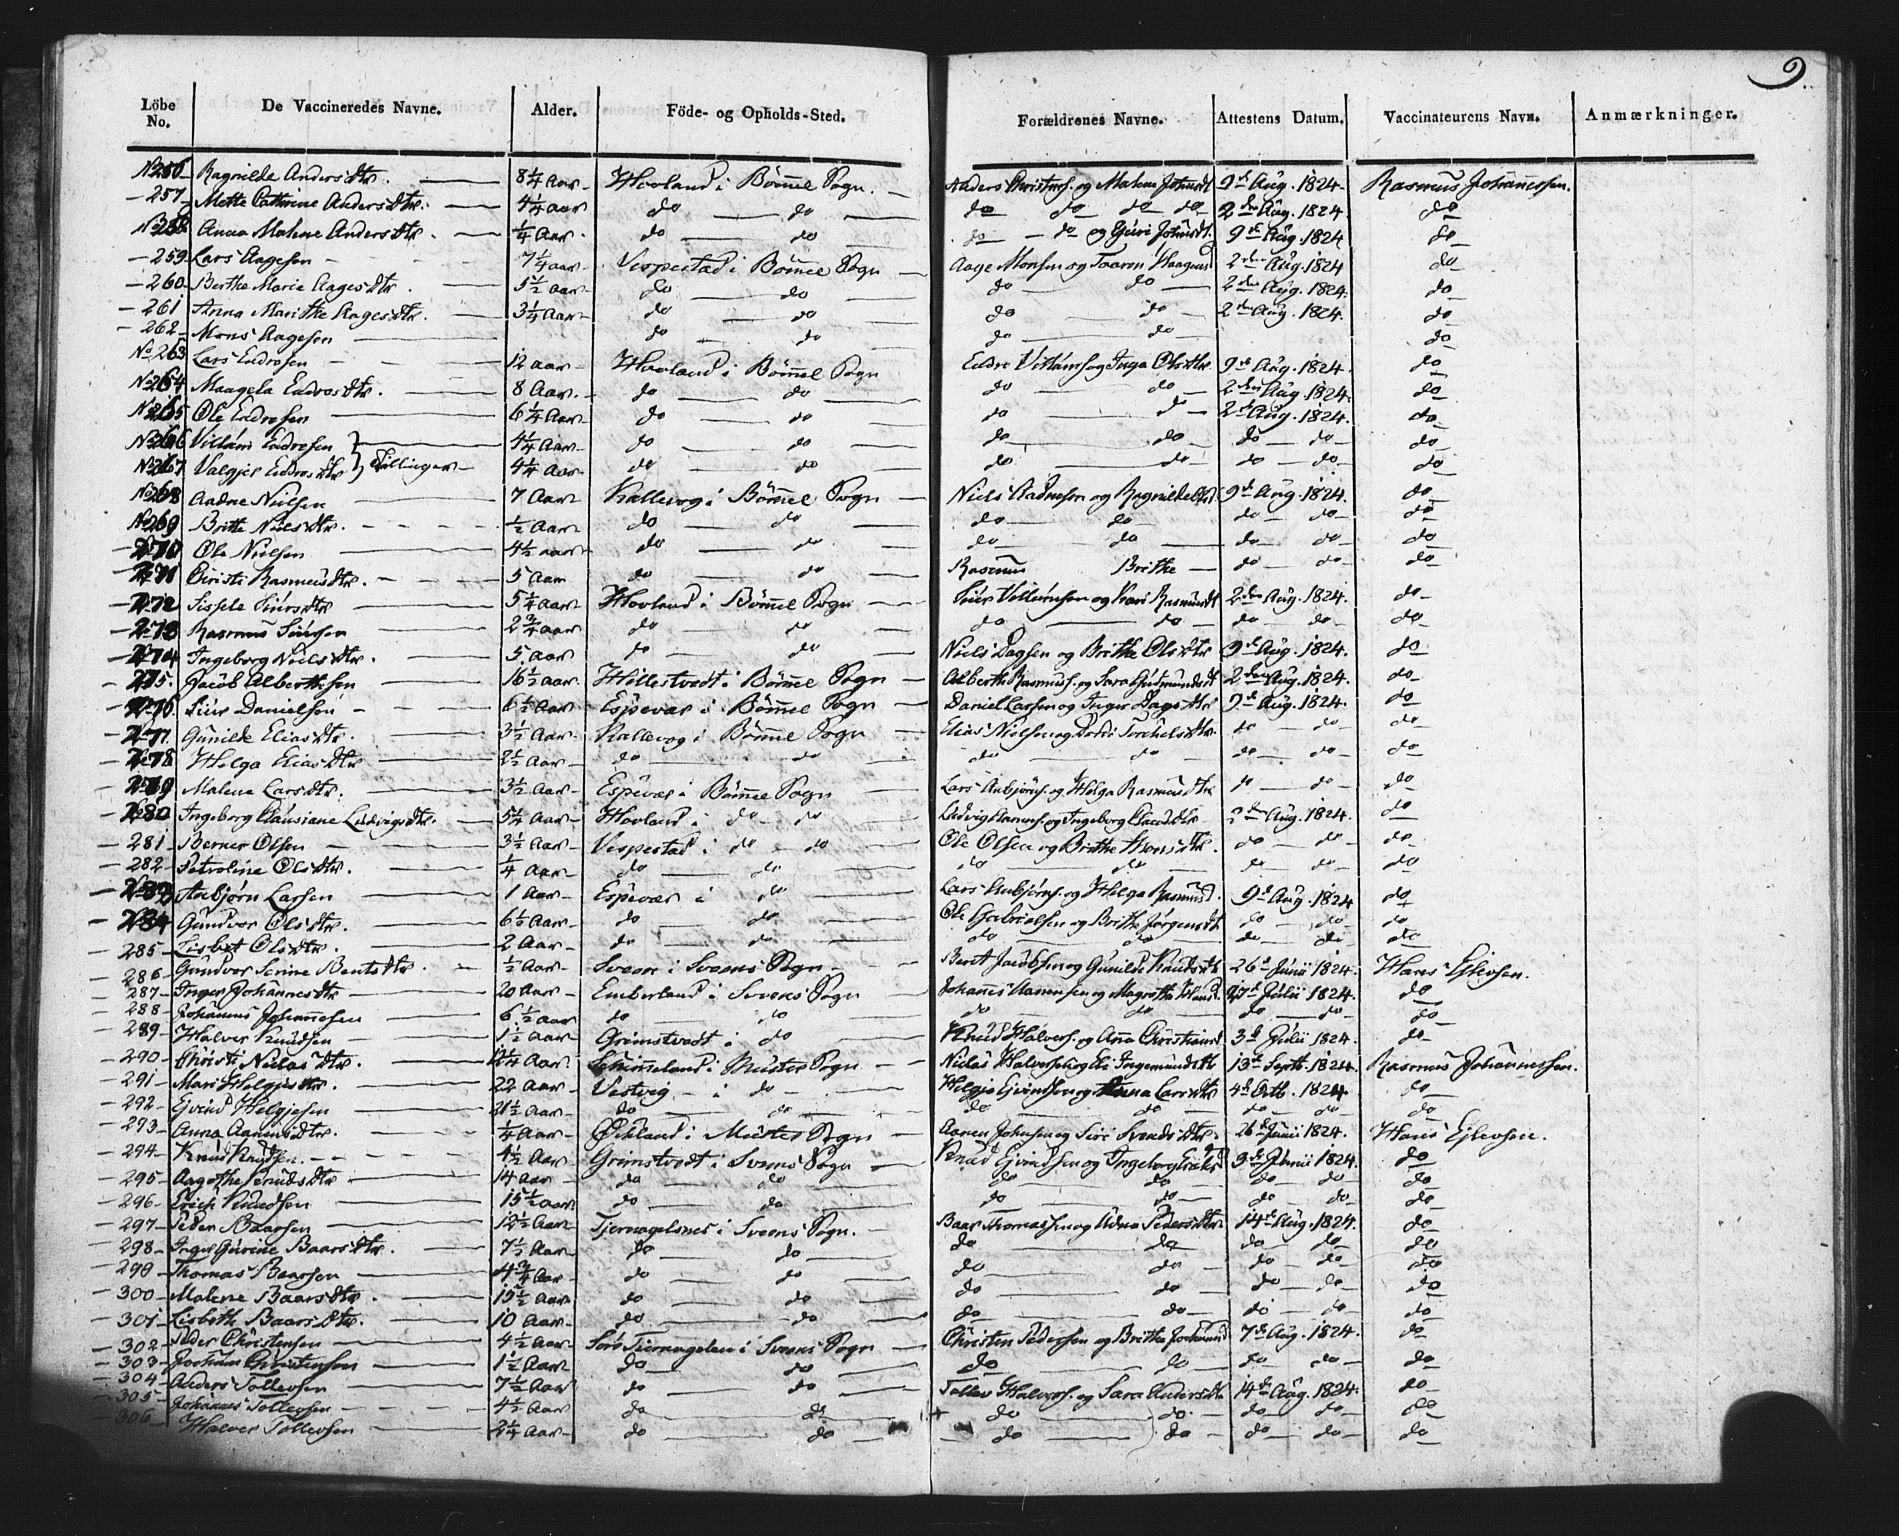 9.
Löbe No. De Vaccineredes Navne. Alder. Föde- og Opholds-Sted. Forældrenes Navne. Attestens Datum. Vaccinateurens Navn. Anmærkninger.
No 256 Ragnilde Andersdtr. 8 1/4 Aar Hovland i Bömmel Sogn. Anders Christens. og Malene Johnsdt 9d Aug. 1824 Rasmus Johannessen.
257 Mette Cathrine Andersdtr. 4 1/4 Aar do do do do do do 2den Aug. 1824. do
No 258 Anna Malene Andersdtr. 1/4 Aar. do do do do og Guri Johnsdt. 9d Aug. 1824 do
259 Lars Aagesen 7 1/4 Aar Vespestad i Bömmel Sogn Aage Monsen og Taaren Haagensd 2den Aug. 1824 do
260 Berthe Marie Aagesdtr. 5 1/2 Aar do do do do 2den Aug. 1824. do
261 Anna Marithe Aagesdtr. 3 1/4 Aar do do do do 2den Aug. 1824. do
262 Mons Aagesen do do do do do
No 263 Lars Endresen 12 Aar Hovland i Bömmel Sogn Endre Villums og Inga Olsdtr 9d Aug. 1824. do
No 264 Maagela Endresdtr. 8 Aar. do do do do 2den Aug. 1824. do
No 265 Ole Endresen 6 1/4 Aar do do do do 2d Aug. 1824. do
No 266 Villum Endresen } 4 1/4 Aar do do do do do do do
No 267 Valgjer Endresdtr } Tvillinger 4 1/4 Aar do do do do do do do
No 268 Aadne Nielsen 7 Aar Kallevog i Bömmel Sogn Niels Aadnesen og Ragnilde 9d Aug. 1824. do
No 269 Britte Nielsdtr. 1/2 Aar do do do do do do do
270 Ole Nielsen 4 1/2 Aar do do do do do do do
271 Christi Rasmusdtr. 5 Aar do do Rasmus Brithe do do do
272 Sissele Siursdtr 5 1/4 Aar Hovland i Bömmel Sogn Siur Villumsen og Kari Rasmusdt 2den Aug. 1824. do
273 Rasmus Siursen 2 3/4 Aar do do do do do do do
274 Ingeborg Nielsdtr. 5. Aar do do Niels Dagsen og Brithe Olsdtr 9d Aug. 1824. do
275. Jacob Alberthsen 16 1/2 Aar Hillestvedt i Bömmel Sogn Alberth Rasmuss. og Sara Gudmundsdt 2den Aug. 1824. do
276 Siur Danielsen 6 1/2 Aar Espevær i Bömmel Sogn Daniel Larsen og Inger Dagsdtr 9d Aug. 1824. do
277. Gunilde Eliasdtr. 3 1/2 Aar Kallevog i Bömmel Sogn Elias Nielsen og Dordi Torchelsdtr. do do do
278 Helga Eliasdtr 2 1/2 Aar do do do do do do do
279 Malene Larsdtr. 3 1/2 Aar Espevær i Bömmel Sogn Lars Anbjörns. og Helga Rasmusdtr do do do
280 Ingeborg Clausiane Ludvigsdtr. 5 1/4 Aar Hovland i do do Ludvig Hanns. og Ingeborg Clausdtr 2d Aug. 1824. do
281 Berner Olsen 3 1/2 Aar Vespestad i do do Ole Olsen og Brithe Monsdtr. do do do
282 Petroline Olsdtr. 1/4 Aar do do do do do do do
283 Anbjørn Larsen 1 Aar Espevær i do Lars Anbjörns. og Helga Rasmusd. 9d Aug. 1824 do
284 Gundvor Olsdtr. 6 1/2 Aar do do Ole Gabrielsen og Brithe Jørgensdt do do do
285 Lisbet Olsdtr. 2 Aar do do do do do do do
286 Gundvor Serine Bentsdtr. 1/2 Aar Sveen i Sveens Sogn Bent Jacobsen og Gunilde Knudsdtr 26d Junii 1824. Hans Ellevsen.
287 Inger Johannesdtr 20 Aar Emberland i Sveens Sogn Johannes og Magrethe 23d Julii 1824. do
288 Johannes Johannesen 6 1/2 Aar do do do do do do do
289 Halver Knudsen 1 1/2 Aar Grimstvedt i do Knud Halvers. og Ana Christiansd 3d Julii 1824. do
290 Christi Nielasdtr. 12 1/4 Aar i Möster Sogn Nielas Halversen og Eli Ingemundsdtr 13d Septb. 1824. Rasmus Johannessen.
291 Mari Helgjesdtr. 22 Aar Vestvig i do Helgje Eivindsen og Anna Larsdtr 4d Octb. 1824 do
292 Ejvind Helgjesen 21 1/2 Aar do do do do do do do
293 Anna Aanensdtr. 1/4 Aar Økland i Möster Sogn Aanen Johnsen og Siri Svendsdtr. 26d Junii 1824. Hans Ellevsen.
294 Knud Knudsen. 4 1/2 Aar Grimstvedt i Sveens Sogn Knud Eivindsen og Ingeborg Erichsd 3d Julii 1824. do
295 Aagothe Knudsdtr 14 Aar do do do do do do do
296 Erich Knudsen 15 1/2 Aar do do do do do do do
297 Peder Baarsen 12 1/2 Aar Tjernagelsnes i Sveens Sogn. Baar Thomassen og Adna Pedersdtr 14d Aug. 1824 do
298 Inger Gurine Baarsdtr. 7 1/2 Aar do do do do do do do
299 Thomas Baarsen 4 3/4 Aar do do do do do do do
300 Malene Baarsdtr. 15 1/2 Aar do do do do do do do
301 Lisbeth Baarsdtr. 10 Aar do do do do do do do
302 Peder Christensen 4 1/2 Aar Sörs Tiernagelen i Sveens Sogn Christen Pedersen og Brithe Jochumsd 7d Aug. 1824. do
303 Jochum Christensen 1 1/2 Aar do do do do do do do
304 Anders Tollevsen 7 1/2 Aar do do Tollev Halvers. og Sara Andersdtr 14d Aug. 1824. do
305 Johannes Tollevsen 4 1/2 Aar do do do do do do do
306 Halver Tollevsen 2 1/4 Aar do do do do do do do